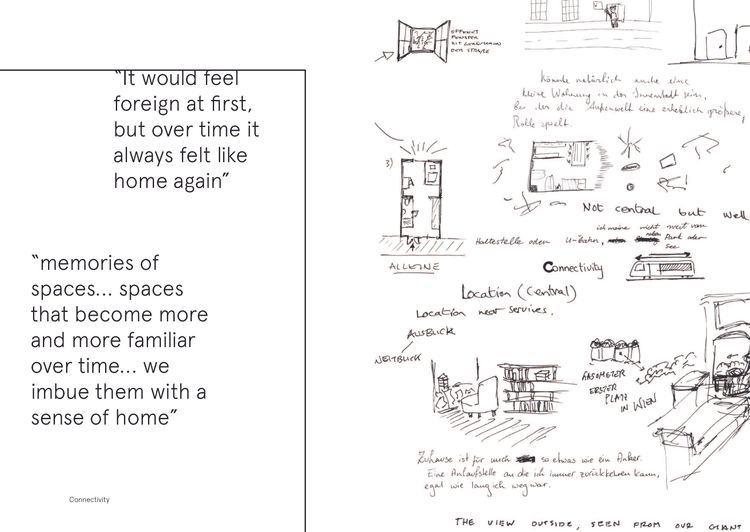 “It would feel
foreign at first,
but over time it
always felt like
home again”
“memories of
spaces... spaces
that become more
and more familiar
over time... we
imbue them with a
sense of home”
Connectivity
ÖFFENES
FENSTER
MIT
DER STRASSE
Könnte natürlich auch eine
kleine Wohnung in der Innenstadt sein,
bei der die Außenwelt eine erheblich größere,
Rolle spielt.
3)
ALLEINE
Not central but well
ich meine nicht weit von
Haltestelle oder U-Bahn, Park oder
See
Connectivity
Location (Central)
Location near services.
AUSBLICK
WEITBLICK
GASOMETER
ERSTER
PLATZ
IN WIEN
Zuhause ist für mich so etwas wie ein Anker.
Eine Anlaufstelle an die ich immer zurückkehren kann,
egal wie lang ich weg war.
THE VIEW OUTSIDE, SEEN FROM OUR GIANT